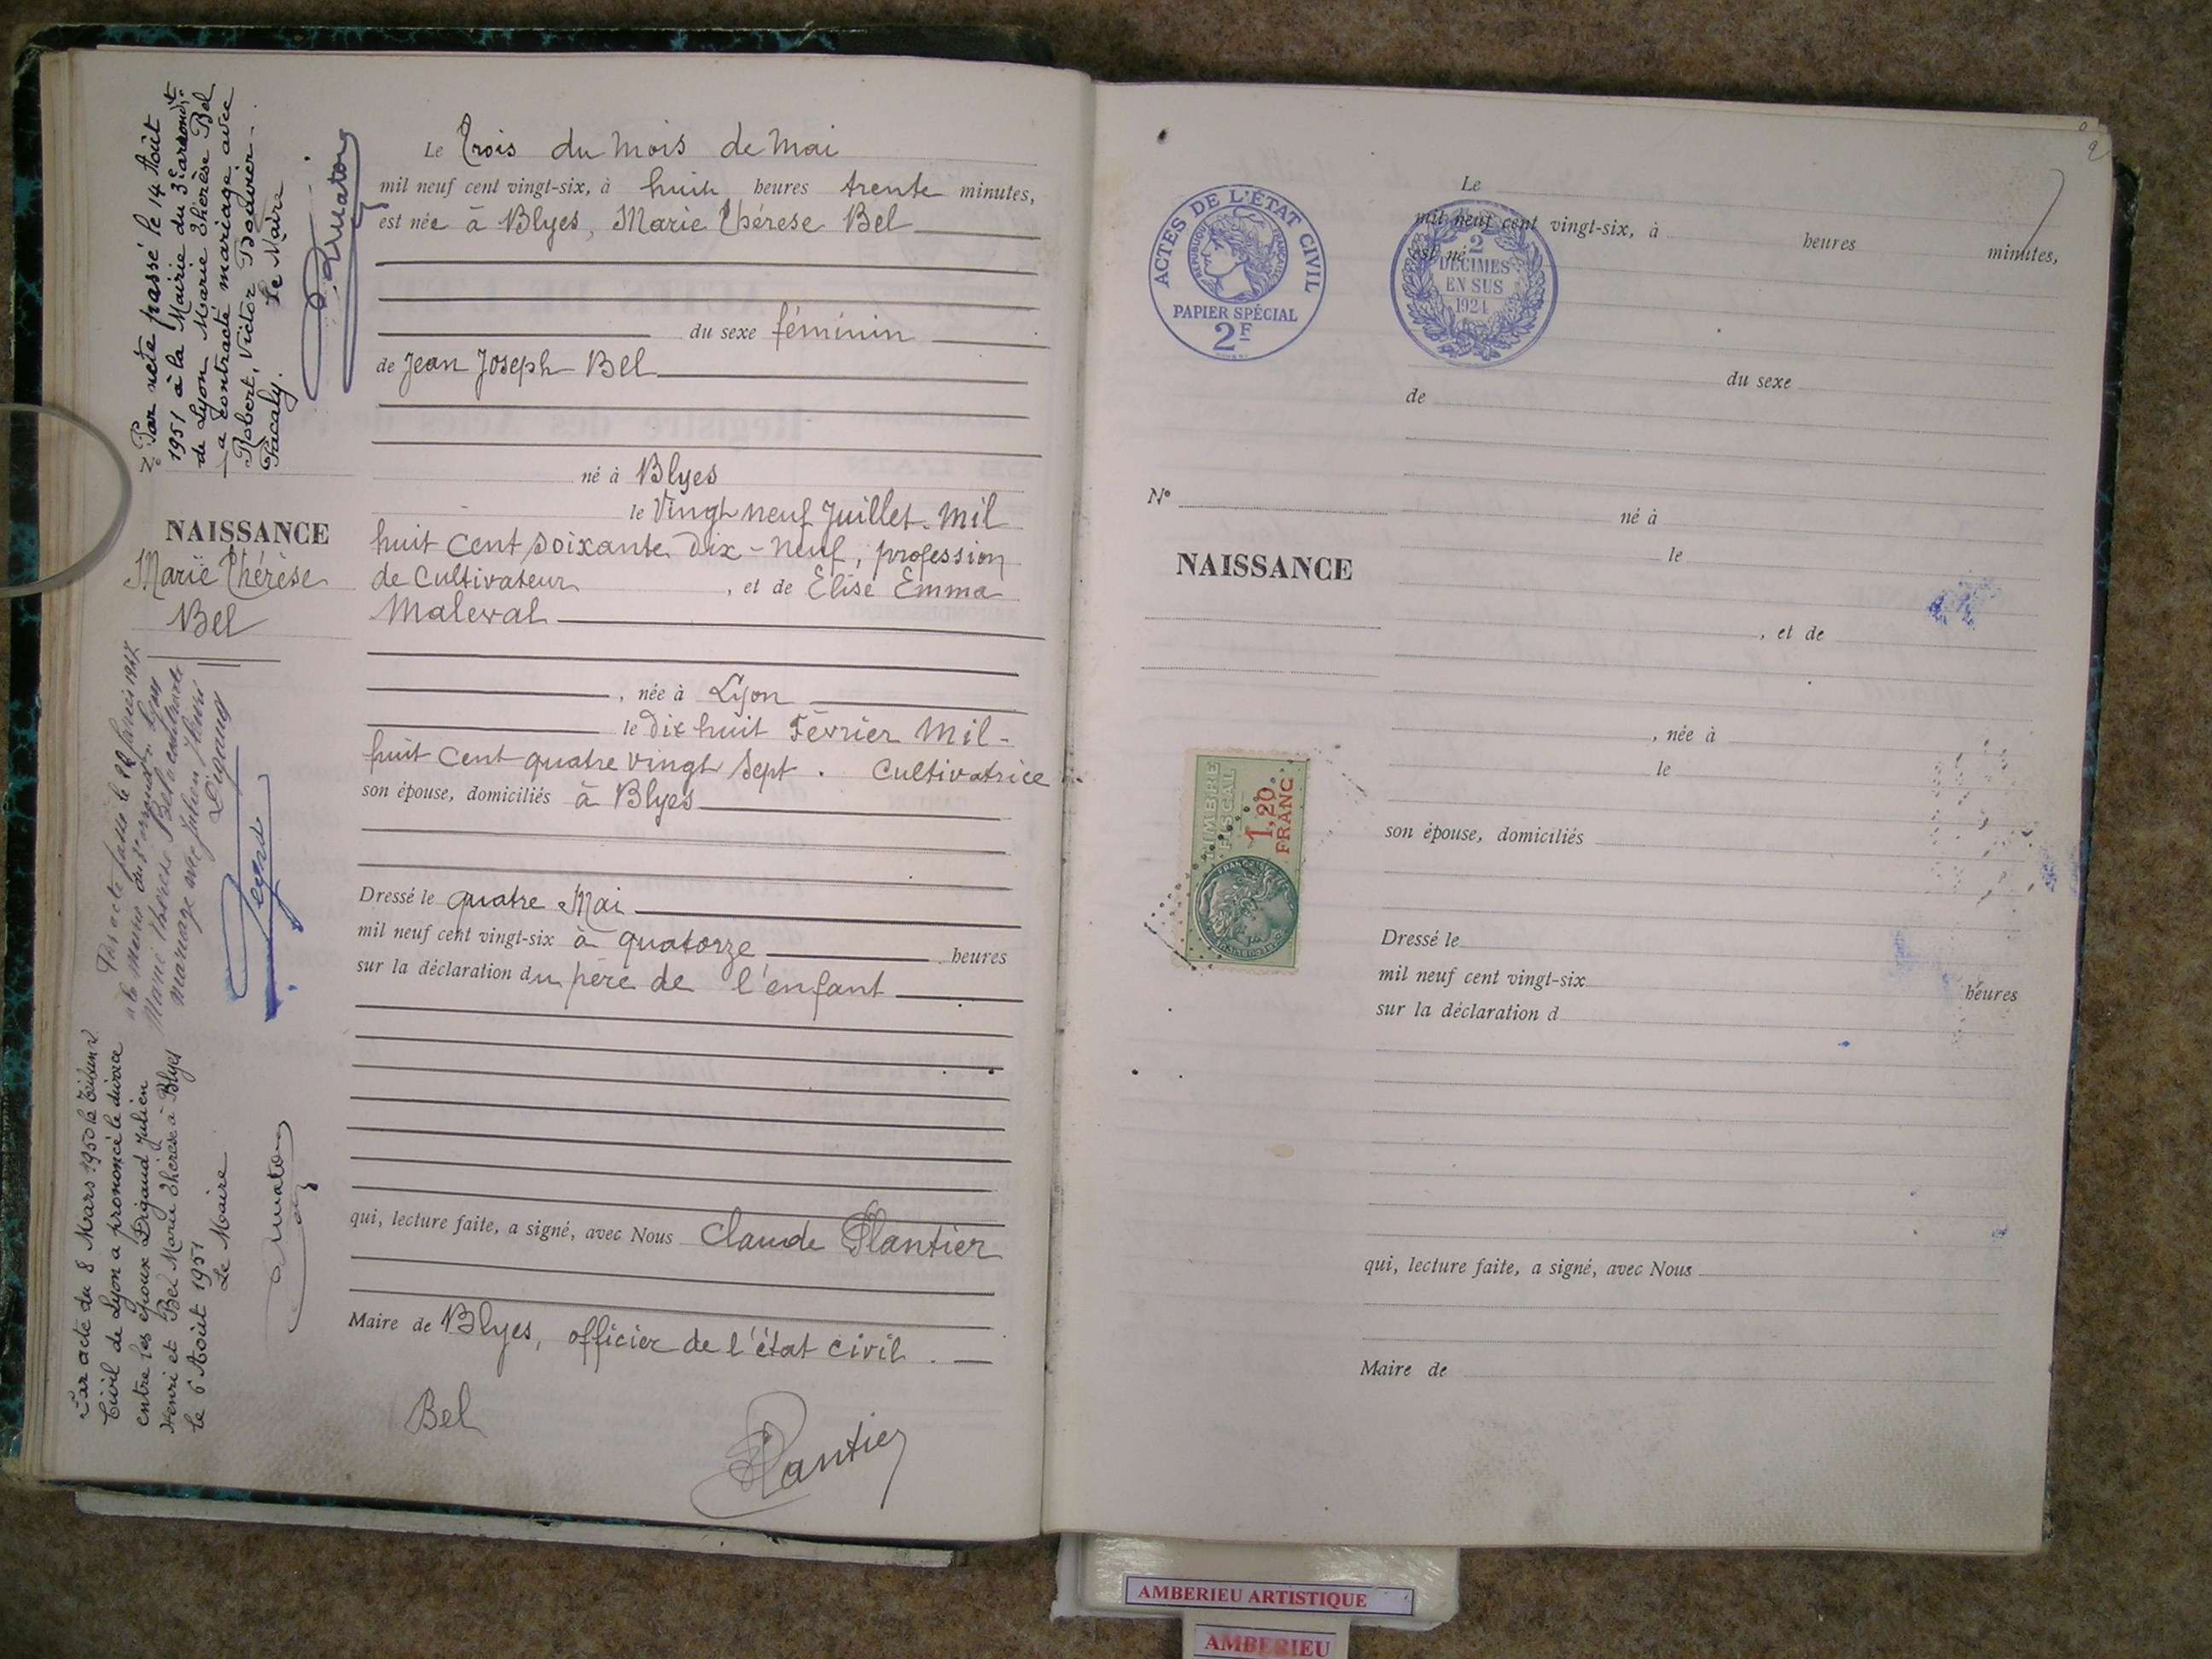 Le Trois du mois de mai
mil neuf cent vingt-six, à huit heures trente minutes,
est née à Blyes, Marie Thérèse Bel
du sexe féminin
de Jean Joseph Bel
né à Blyes
le Vingt neuf Juillet mil
huit cent soixante dix-neuf, profession
de Cultivateur, et de Elise Emma
Maleval
, née à Lyon
le dix huit Février mil-
huit cent quatre vingt sept. Cultivatrice
son épouse, domiciliés à Blyes
Dressé le quatre Mai
mil neuf cent vingt-six à quatorze heures
sur la déclaration du père de l'enfant
qui, lecture faite, a signé, avec Nous Claude Plantier
Maire de Blyes, officier de l'état civil.
Bel
Plantier
N°
Par acte passé le 14 Août
1951 à la Mairie du 3e arrondit
de Lyon Marie Thérèse Bel
a contracté mariage avec
Robert, Victor
Pacaly.
Le Maire
NAISSANCE
Marie Thérèse
Bel
Par acte passé le
à la mairie du arrondt Lyon
Marie Thérèse Bel a contracté
mariage avec Julien Henri
Digaud
Par acte du 8 Mars 1950 le Tribunal
Civil de Lyon a prononcé le divorce
entre les époux Digaud Julien
Henri et Bel Marie Thérèse à Blyes
le 6 Août 1951
Le Maire
2
ACTES DE L'ÉTAT CIVIL
RÉPUBLIQUE FRANÇAISE
PAPIER SPÉCIAL
2F
2
DÉCIMES
EN SUS
1924
Le
mil neuf cent vingt-six, à heures minutes,
est né
du sexe
de
N°
né à
le
NAISSANCE
, et de
, née à
le
TIMBRE
FISCAL
1,20
FRANC
son épouse, domiciliés
Dressé le
mil neuf cent vingt-six heures
sur la déclaration d
qui, lecture faite, a signé, avec Nous
Maire de
AMBERIEU ARTISTIQUE
AMBERIEU